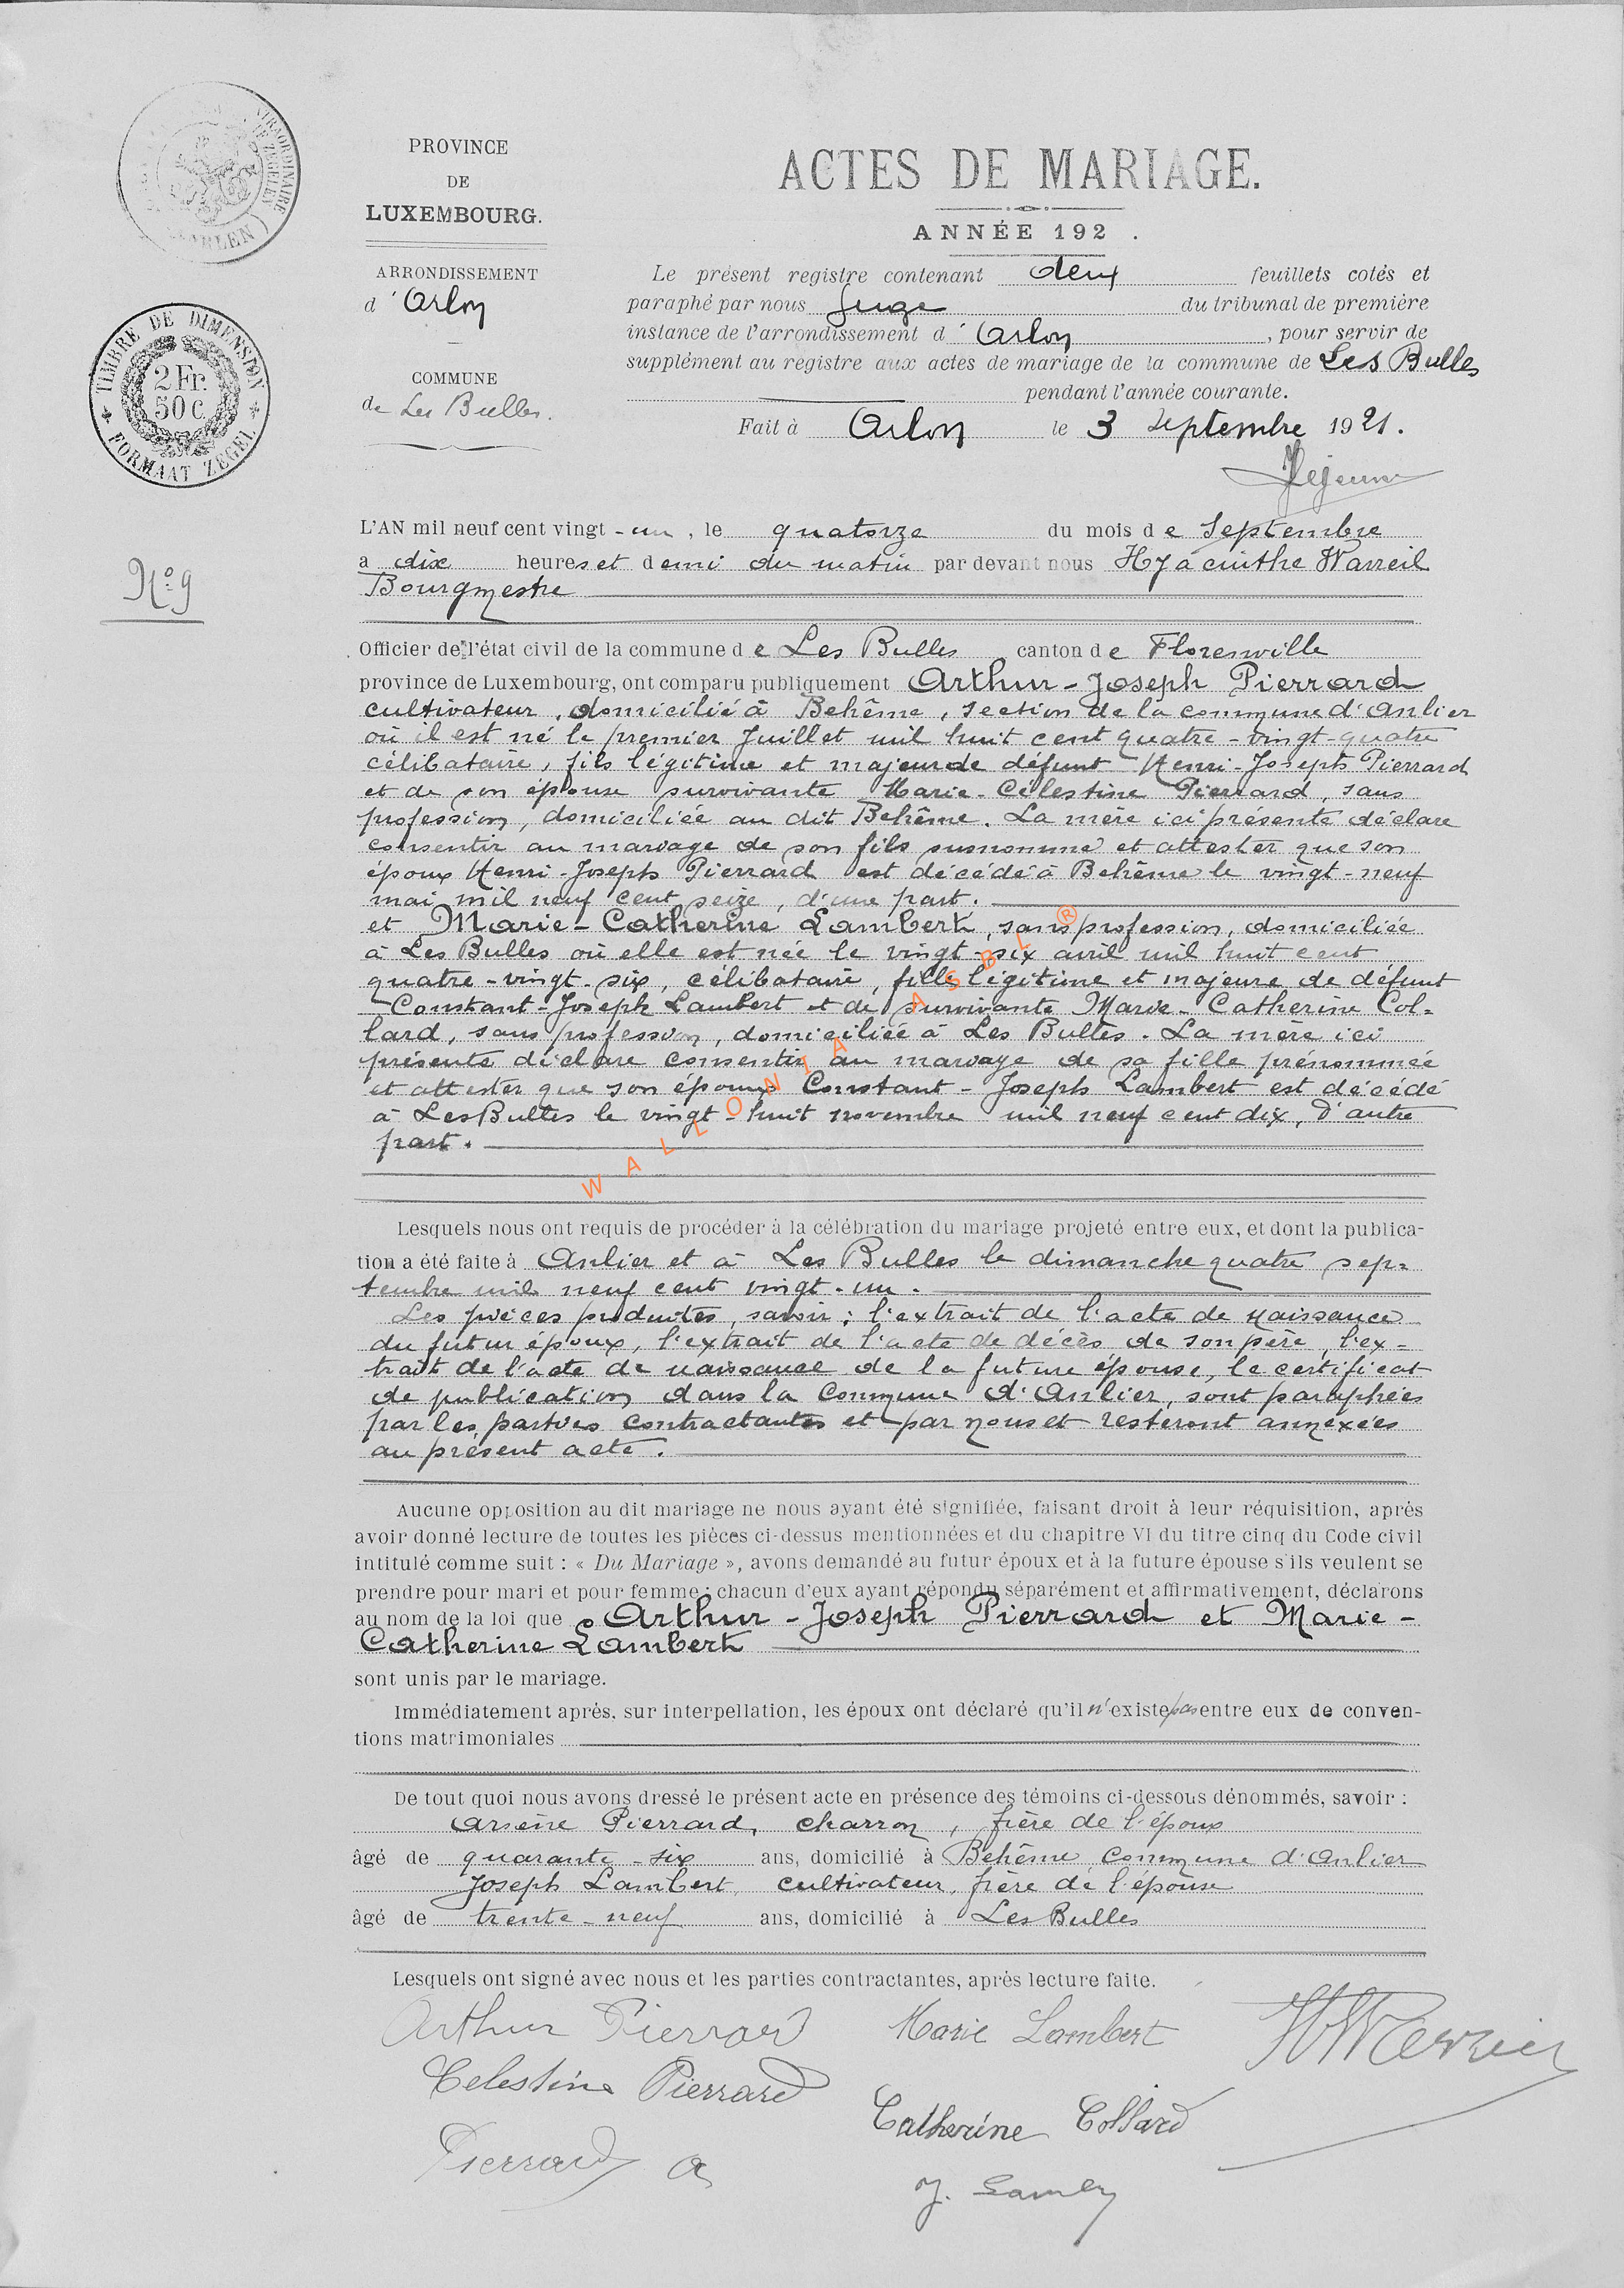 PROVINCE
DE
LUXEMBOURG.
ARRONDISSEMENT
d'Arlon
COMMUNE
de Les Bulles.
TIMBRE DE DIMENSION
2 Fr.
50 C.
FORMAAT ZEGEL
ACTES DE MARIAGE.
ANNÉE 192 .
Le présent registre contenant deux feuillets cotés et
paraphé par nous Juge du tribunal de première
instance de l'arrondissement d'Arlon, pour servir de
supplément au registre aux actes de mariage de la commune de Les Bulles
pendant l'année courante.
Fait à Arlon le 3 septembre 1921.
N° 9
L'AN mil neuf cent vingt-un, le quatorze du mois de Septembre
a dix heures et demi du matin par devant nous Hyacinthe Warreil
Bourgmestre
Officier de l'état civil de la commune de Les Bulles canton de Florenville
province de Luxembourg, ont comparu publiquement Arthur-Joseph Pierrard
cultivateur, domicilié à Behême, section de la commune d'Anlier
où il est né le premier Juillet mil huit cent quatre-vingt-quatre
célibataire, fils légitime et majeur de défunt Henri-Joseph Pierrard
et de son épouse survivante Marie-Célestine Pierrard, sans
profession, domiciliée au dit Behême. La mère ici présente déclare
consentir au mariage de son fils susnommé et attester que son
époux Henri-Joseph Pierrard est décédé à Behême le vingt-neuf
mai mil neuf cent seize, d'une part.
et Marie-Catherine Lambert, sans profession, domiciliée
à Les Bulles où elle est née le vingt-six avril mil huit cent
quatre-vingt-six, célibataire, fille légitime et majeure de défunt
Constant-Joseph Lambert et de survivante Marie-Catherine Col-
lard, sans profession, domiciliée à Les Bulles. La mère ici
présente déclare consentir au mariage de sa fille prénommée
et attester que son époux Constant-Joseph Lambert est décédé
à Les Bulles le vingt-huit novembre mil neuf cent dix, d'autre
part.
WALLONIA ASBL ®
Lesquels nous ont requis de procéder à la célébration du mariage projeté entre eux, et dont la publica-
tion a été faite à Anlier et à Les Bulles le dimanche quatre sep-
tembre mil neuf cent vingt-un.
Les pièces produites, savoir : l'extrait de l'acte de naissance
du futur époux, l'extrait de l'acte de décès de son père, l'ex-
trait de l'acte de naissance de la future épouse, le certificat
de publication dans la Commune d'Anlier, sont paraphées
par les parties contractantes et par nous et resteront annexées
au présent acte.
Aucune opposition au dit mariage ne nous ayant été signifiée, faisant droit à leur réquisition, après
avoir donné lecture de toutes les pièces ci-dessus mentionnées et du chapitre VI du titre cinq du Code civil
intitulé comme suit : « Du Mariage », avons demandé au futur époux et à la future épouse s'ils veulent se
prendre pour mari et pour femme ; chacun d'eux ayant répondu séparément et affirmativement, déclarons
au nom de la loi que Arthur-Joseph Pierrard et Marie-
Catherine Lambert
sont unis par le mariage.
Immédiatement après, sur interpellation, les époux ont déclaré qu'il n'existe pas entre eux de conven-
tions matrimoniales
De tout quoi nous avons dressé le présent acte en présence des témoins ci-dessous dénommés, savoir :
Arsène Pierrard, charron, frère de l'époux
âgé de quarante-six ans, domicilié à Behême, Commune d'Anlier
Joseph Lambert, cultivateur, frère de l'épouse
âgé de trente-neuf ans, domicilié à Les Bulles
Lesquels ont signé avec nous et les parties contractantes, après lecture faite.
Arthur Pierrard Marie Lambert
Celestine Pierrard
Catherine Collard
Pierrard A